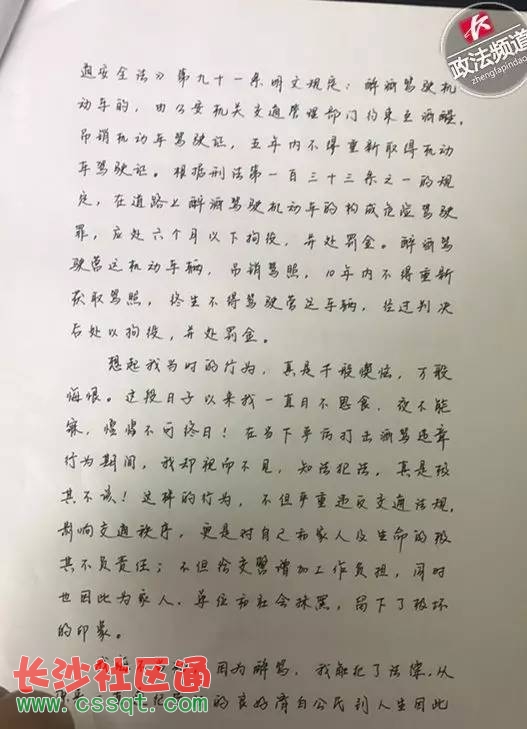 政法频道
zhengfapindao
通安全法》第九十一条明文规定：醉酒驾驶机
动车的，由公安机关交通管理部门约束至酒醒，
吊销机动车驾驶证，五年内不得重新取得机动
车驾驶证。根据刑法第一百三十三条之一的规
定，在道路上醉酒驾驶机动车的构成危险驾驶
罪，应处六个月以下拘役，并处罚金。醉酒驾
驶营运机动车辆，吊销驾照，10年内不得重新
获取驾照，终生不得驾驶营运车辆，经过判决
后处以拘役，并处罚金。
想起我当时的行为，真是千般懊恼，万般
悔恨。这段日子以来我一直日不思食，夜不能
寐，惶惶不可终日！在当下严厉打击酒驾违章
行为期间，我却视而不见，知法犯法，真是极
其不该！这样的行为，不但严重违反交通法规，
影响交通秩序，更是对自己和家人及生命的极
其不负责任；不但给交警增加工作负担，同时
也因此为家人、单位和社会抹黑，留下了极坏
的印象。
因为醉驾，我触犯了法律，从
的良好清白公民到人生因此
长沙社区通
www.cssqt.com